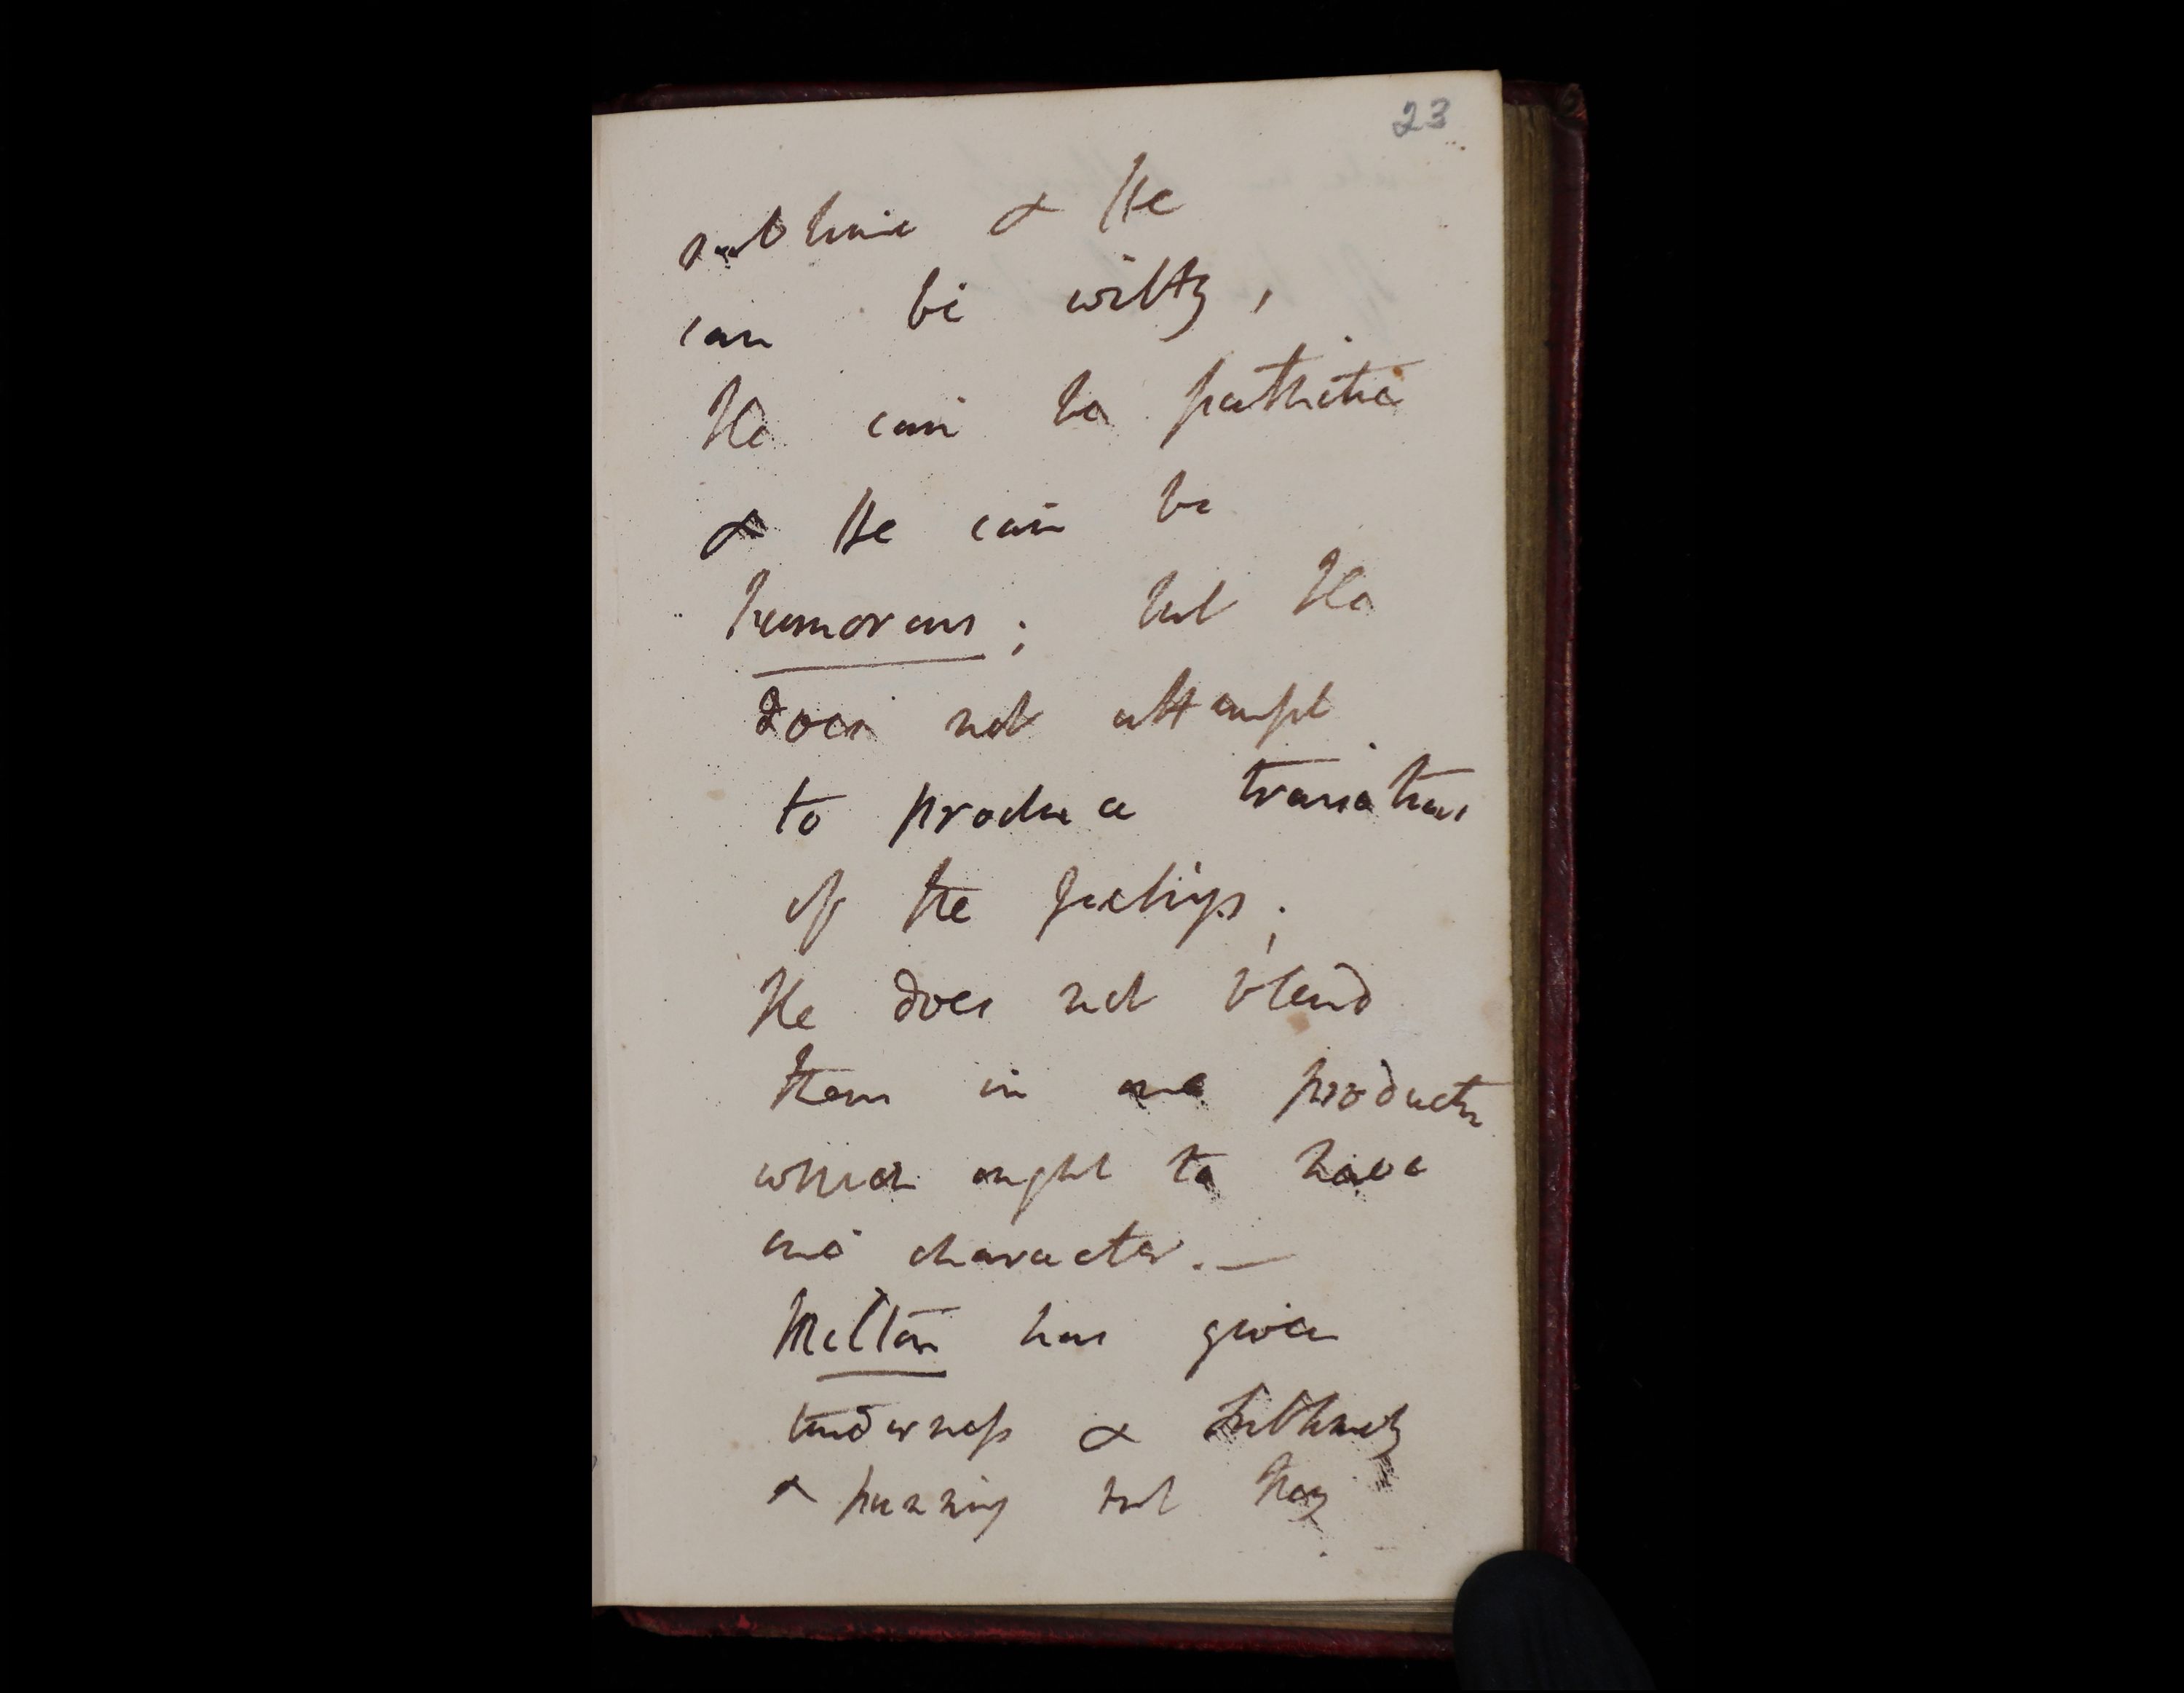 23
sublime & He
can be witty,
He can be pathetic
& He can be
humorous; but He
does not attempt
to produce transitions
of the feelings;
He does not blend
them in one product
which ought to have
one character. —
Milton has given
tenderness & Sublimity
& punning but they